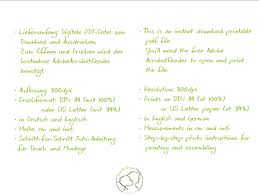 · Lieferumfang: Digitale PDF-Datei zum
Download und Ausdrucken
Zum Öffnen und Drucken wird der
kostenlose AdobeAcrobatReader
benötigt
· Auflösung 300dpi
· Druckformat: DIN A4 (mit 100%)
oder US Letter (mit 94%)
· in Deutsch und Englisch
· Maße cm und inch
· Schritt-für-Schritt Foto-Anleitung
für Druck und Montage
· This is an instant download printable
pdf file.
You'll need the free Adobe
AcrobatReader to open and print
the file.
· Resolution 300dpi
· Prints on DIN A4 (at 100%)
or US Letter paper (at 94%)
· in English and German
· Measurements in cm and inch
· Step-by-step photo instructions for
printing and assembling